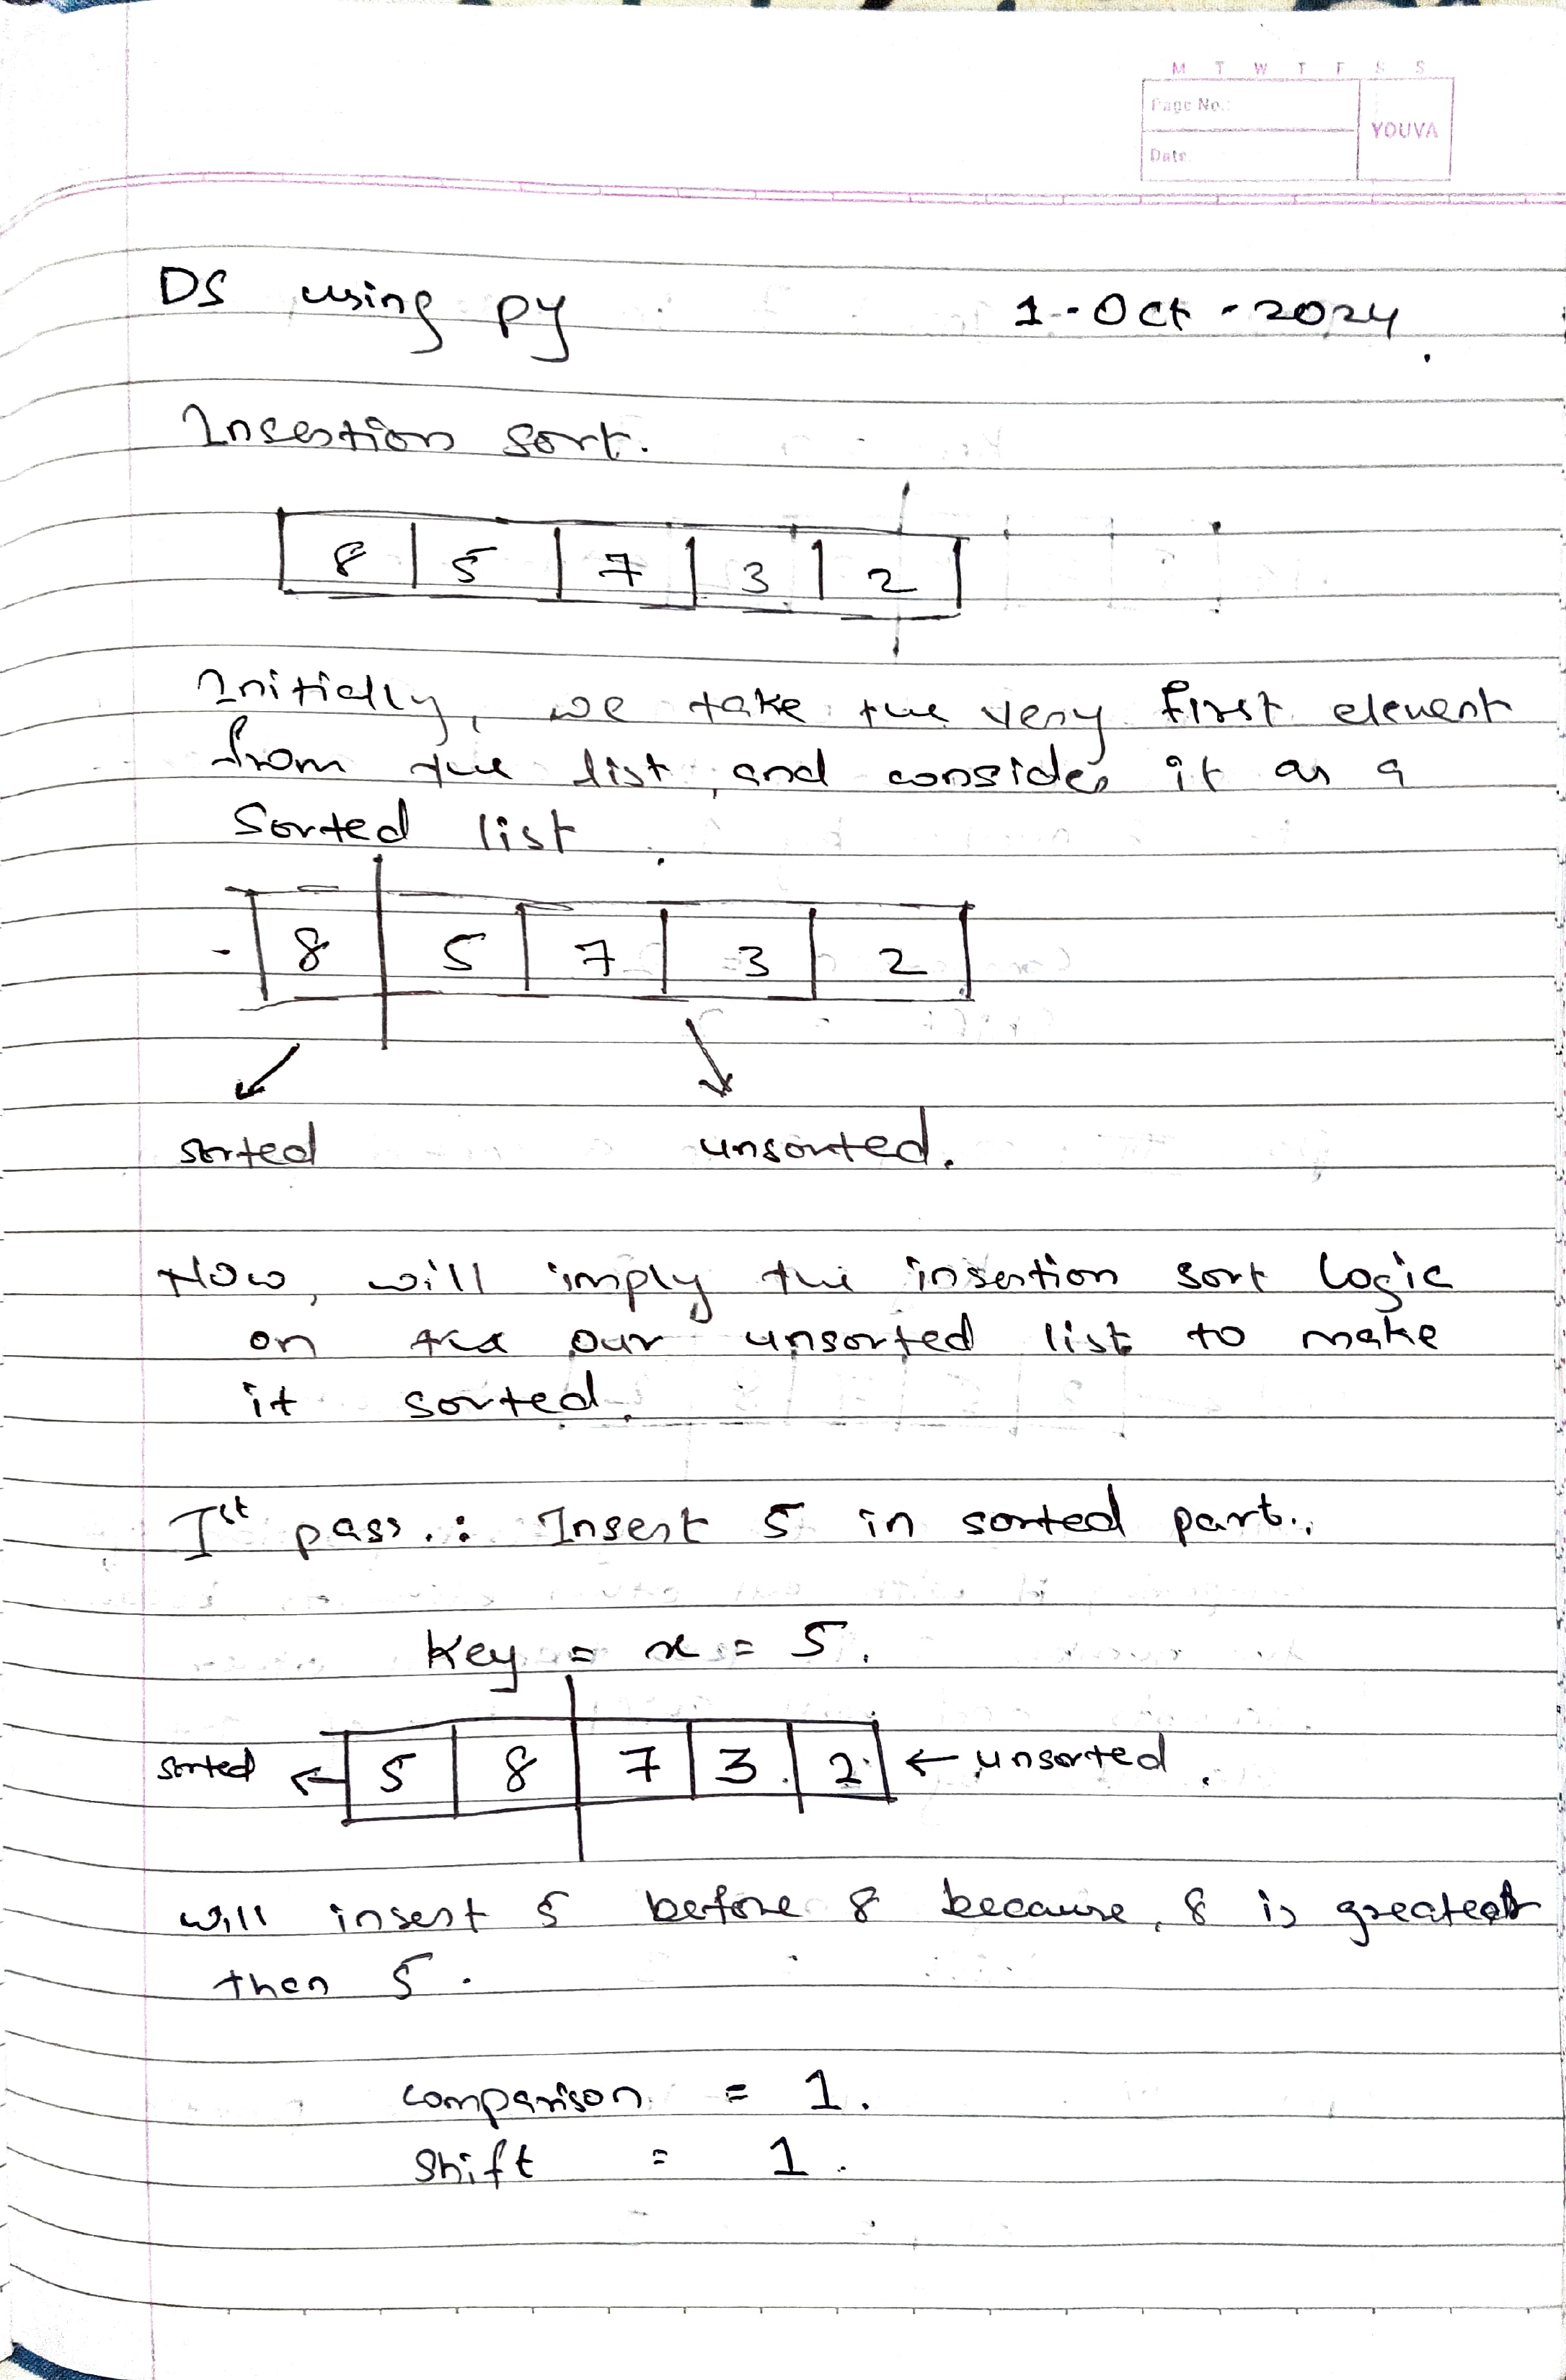 M T W T F S S
Page No.:
YOUVA
Date:
DS using py 1-Oct-2024.
Insertion sort.
8 5 7 3 2
Initially, we take the very first element
from the list, and consider it as a
sorted list.
8 5 7 3 2
sorted unsorted.
Now, will imply the insertion sort logic
on our unsorted list to make
it sorted.
Ist pass.: Insert 5 in sorted part.
Key = x = 5.
sorted ← 5 8 7 3 2 ← unsorted.
will insert 5 before 8 because, 8 is greater
then 5.
comparison = 1.
Shift = 1.